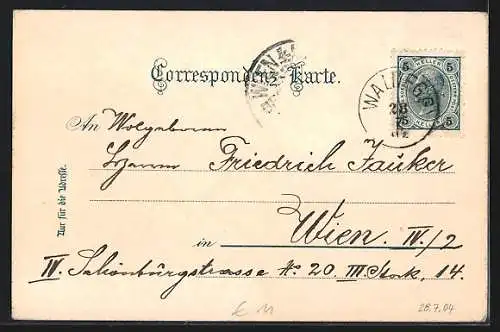 Correspondenz-Karte.
WIEN
5 HELLER 5
WALDEGG
28
04
An Wolgeboren
Herrn Friedrich Jauker
Wien. IV/2
in
IV. Schönburgstrasse No 20. III Stock, 14.
Nur für die Adresse.
28.7.04